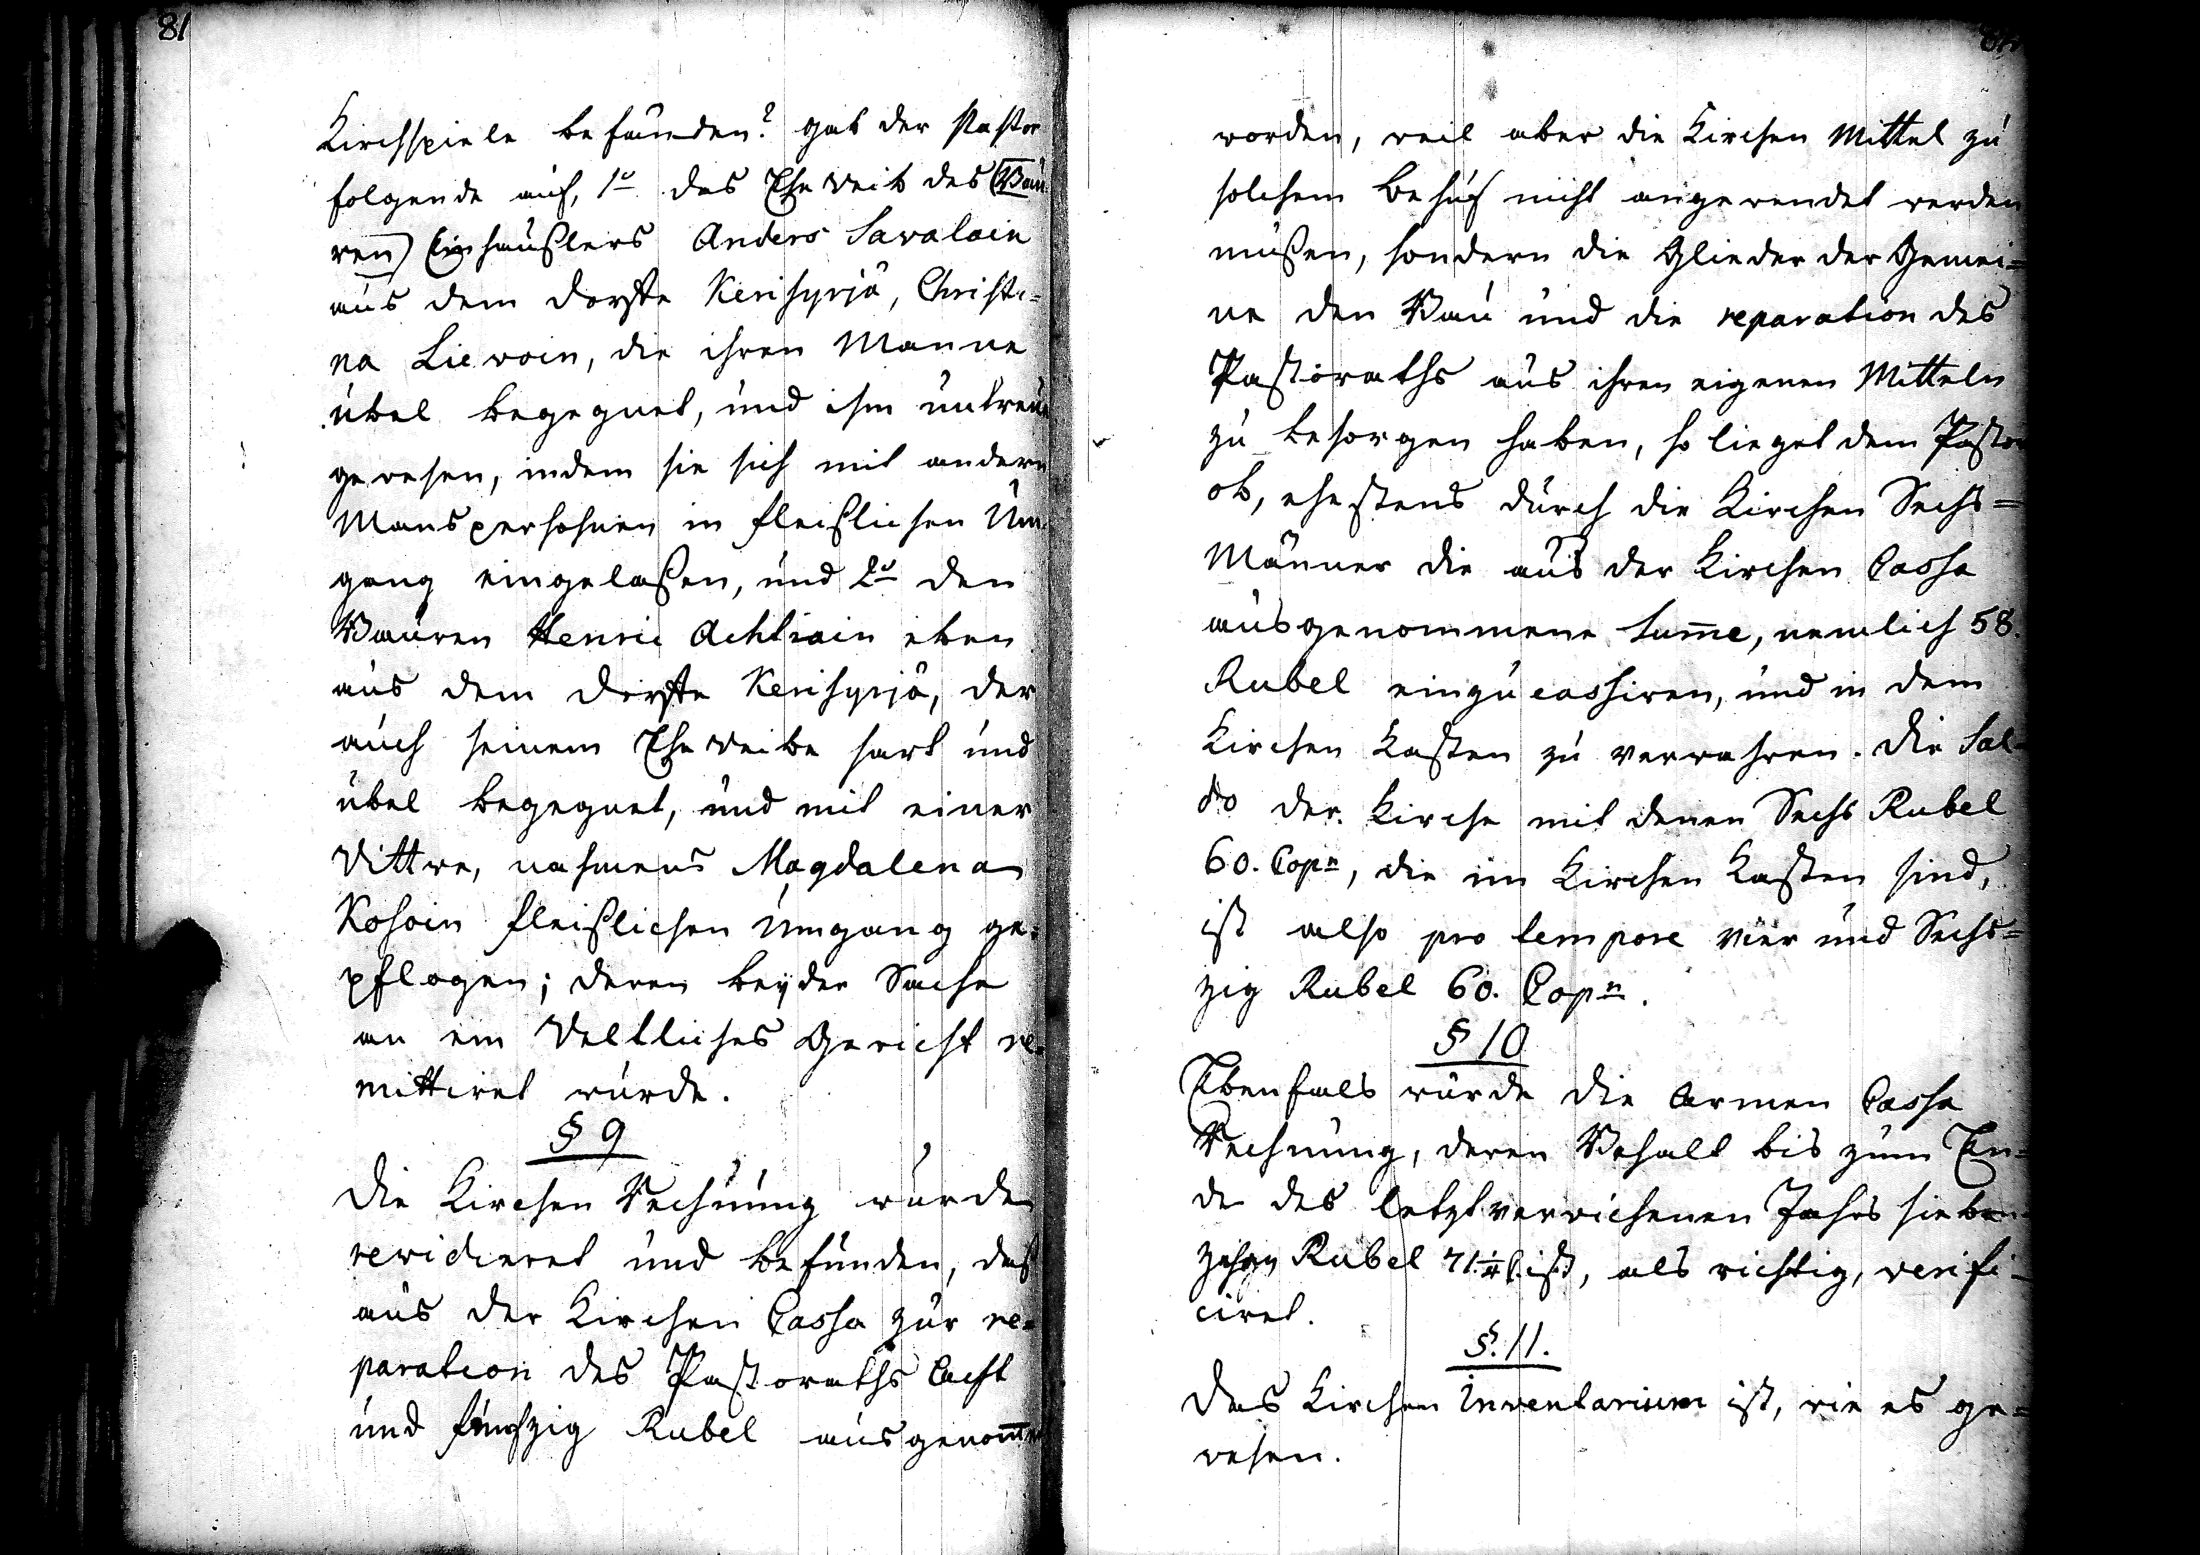 81
Kirchspiele befunden? gab der Pastor
folgende auf, 1o das Ehe Weib des (Bau-
ren) Einhäußlers Anders Savalain
aus dem Dorffe Kerisyrjä, Christi=
na Liewoin, die ihren Manne
übel begegnet, und ihm untreue
gewesen, indem sie sich mit andern
Manspersohnen in fleißlichen Um-
gang eingelaßen, und 2o den
Bauren Henric Achtiain eben
aus dem Dorffe Kerisyrjä, der
auch seinem Ehe Weibe hart und
übel begegnet, und mit einer
Wittwe, nahmens Magdalena
Kohoin fleißlichen Umgang ge=
pflogen; deren beyder Sache
an ein Weltliches Gericht re=
mittiret wurde.
§ 9
Die Kirchen Rechnung wurde
revidieret und befunden, daß
aus der Kirchen Cassa zur re=
paration des Pastoraths Acht
und funfzig Rubel ausgenom̅en
82
worden, weil aber die Kirchen Mittel zu
solchem Behuf nicht angewendet werden
müßen, sondern die Glieder der Gemei=
ne den Bau und die reparation des
Pastoraths aus ihren eigenen Mitteln
zu besorgen haben, so lieget dem Pastor
ob, ehestens durch die Kirchen Sechs=
Männer die aus der Kirchen Cassa
ausgenommene Sum̅e, nemlich 58.
Rubel einzucassiren, und in dem
Kirchen Kasten zu verwahren. Die Sal-
do der Kirche mit denen Sechs Rubel
60. Copn, die im Kirchen Kasten sind,
ist also pro tempore vier und Sechs=
zig Rubel 60. Copn.
§ 10
Ebenfals wurde die Armen Cassa
Rechnung, deren Behalt bis zum En=
de des letztverwichenen Jahrs sieben-
zehen Rubel 71 ist, als richtig, verifi-
ciret.
§. 11.
Das Kirchen Inventarium ist, wie es ge=
wesen.